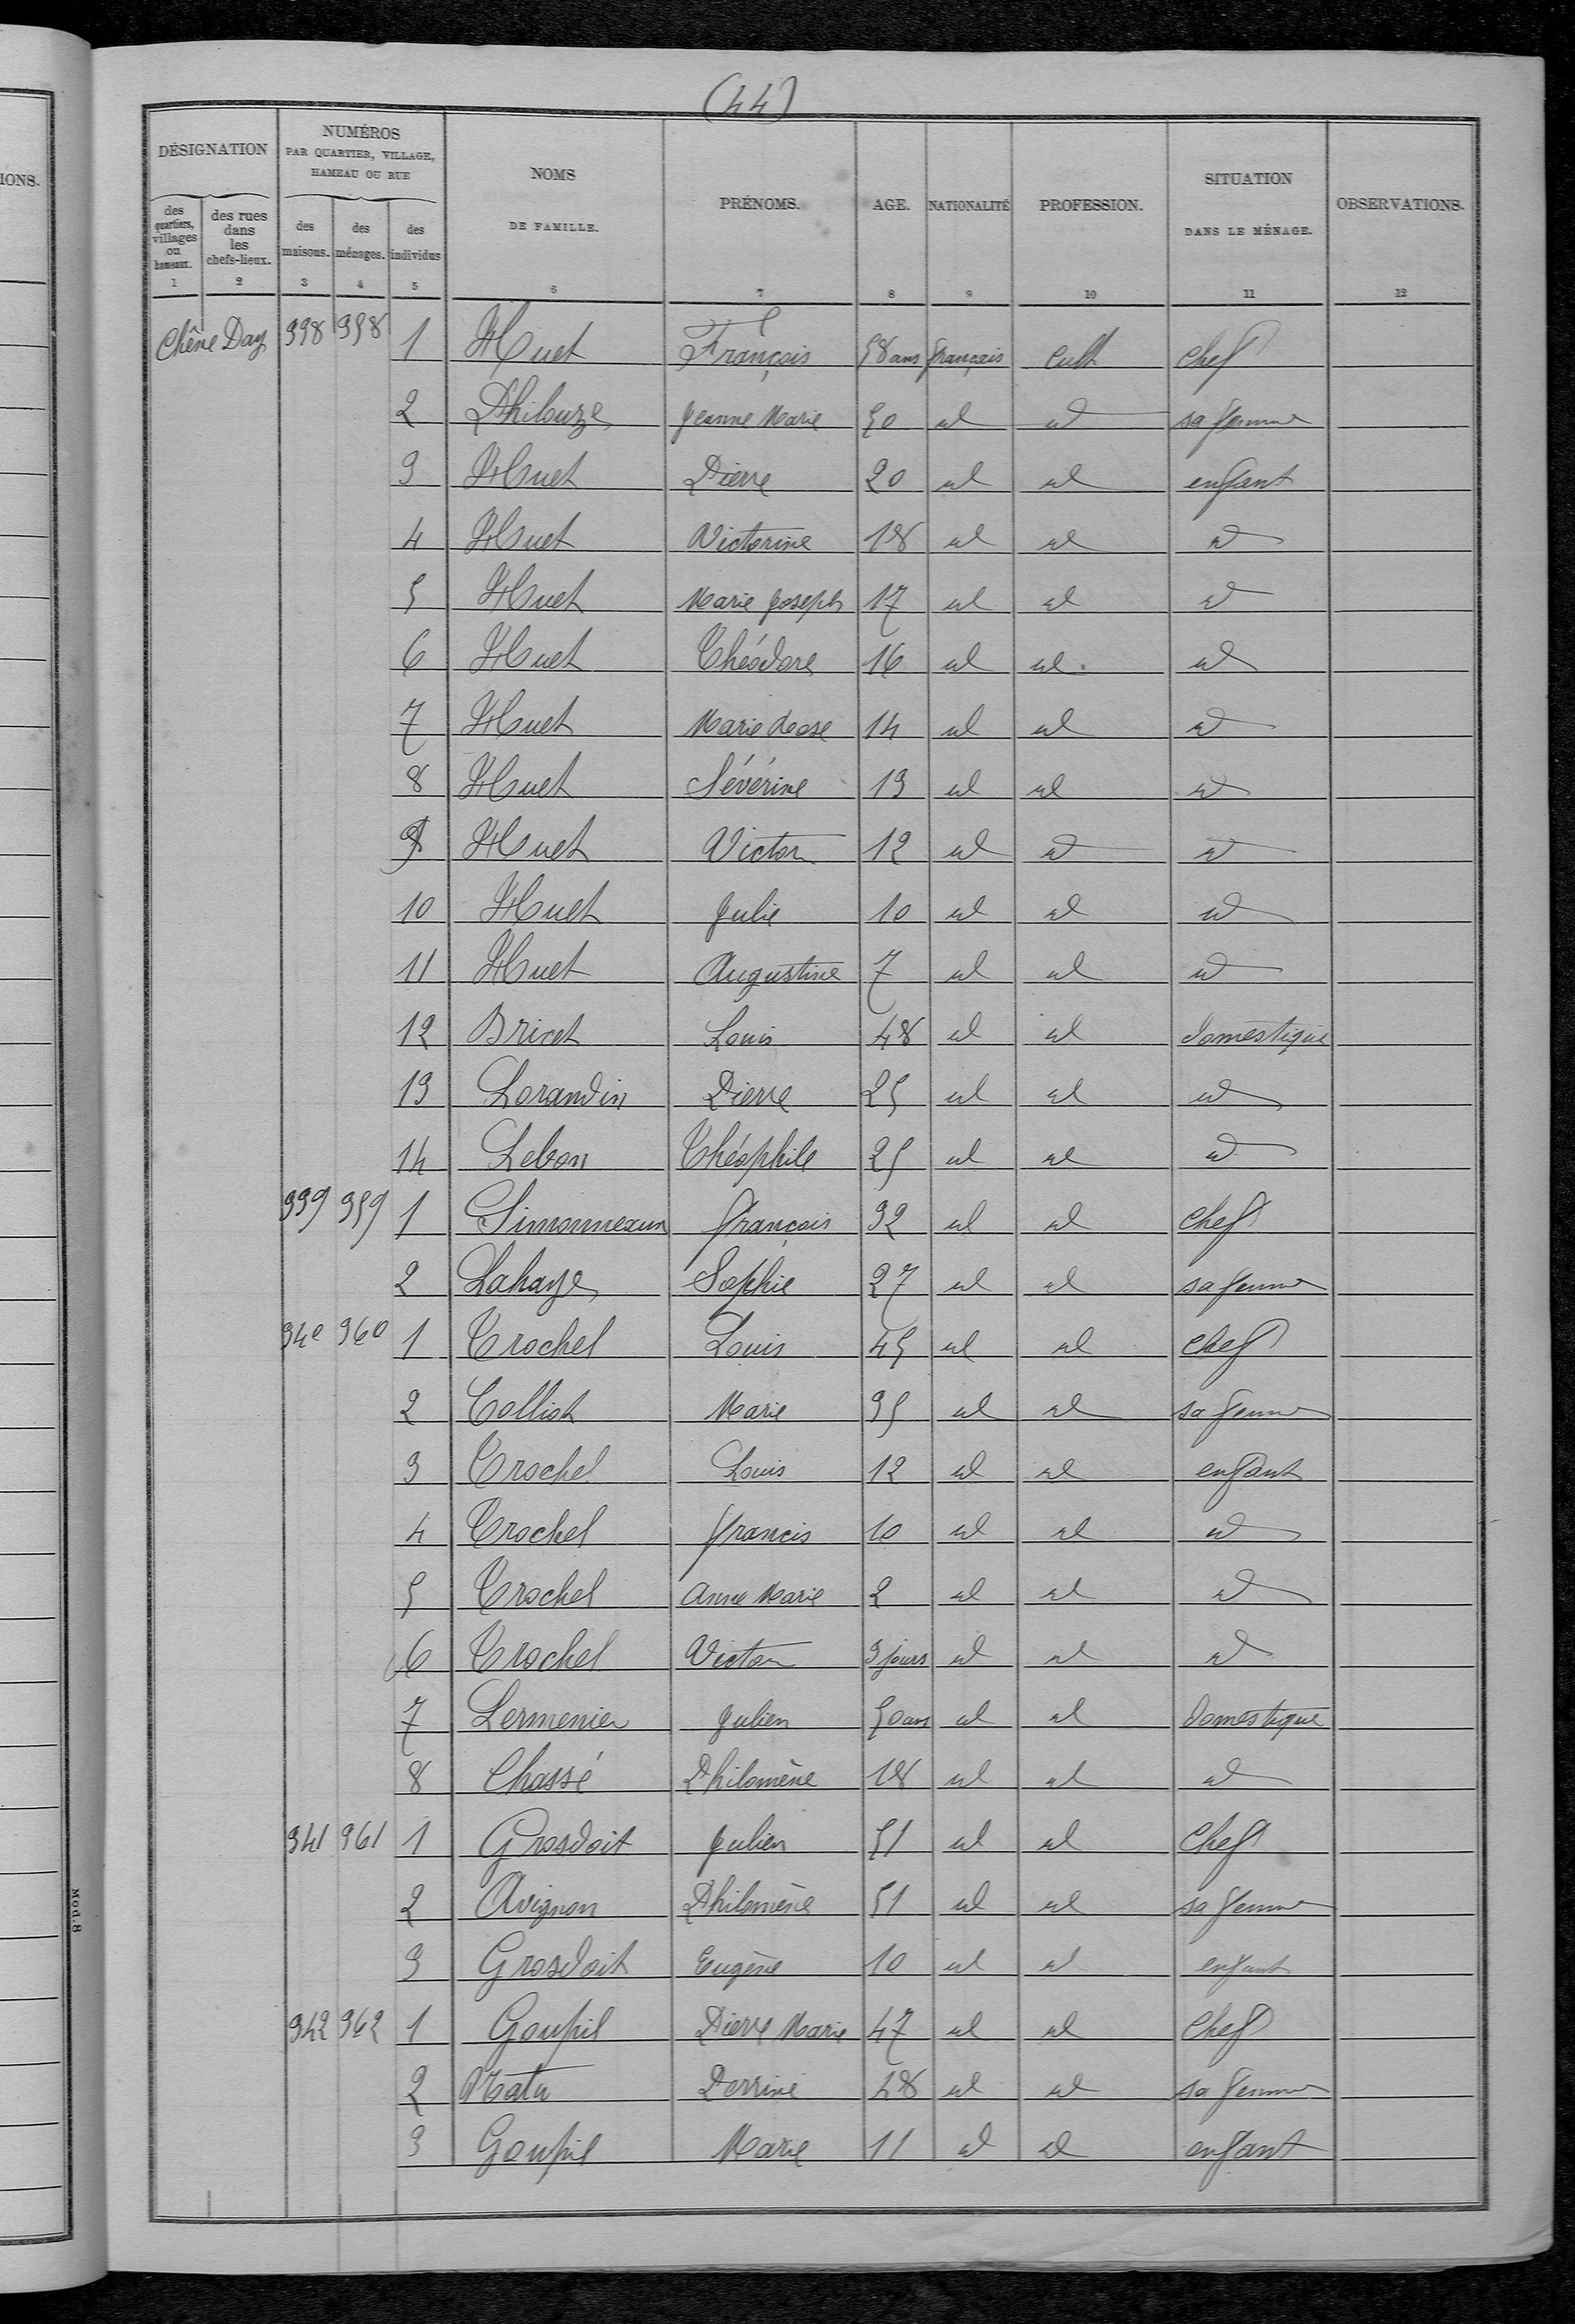 (44)
DÉSIGNATION
NUMÉROS PAR QUARTIER, VILLAGE, HAMEAU OU RUE
NOMS DE FAMILLE.
PRÉNOMS.
AGE.
NATIONALITÉ
PROFESSION.
SITUATION DANS LE MÉNAGE.
OBSERVATIONS.
des quartiers, villages ou hameaux.
des rues dans les chefs-lieux.
des maisons.
des ménages.
des individus
1 2 3 4 5 6 7 8 9 10 11 12
Chêne Day 338 358 1 Huet François 58 ans français cult chef
2 Philouze Jeanne Marie 50 id id sa femme
3 Huet Pierre 20 id id enfant
4 Huet Victorine 18 id id id
5 Huet Marie Joseph 17 id id id
6 Huet Théodore 16 id id id
7 Huet Marie Rose 14 id id id
8 Huet Sévérine 13 id id id
9 Huet Victor 12 id id id
10 Huet Julie 10 id id id
11 Huet Augustine 7 id id id
12 Bricet Louis 48 id id domestique
13 Lorandin Pierre 25 id id id
14 Lebon Théophile 25 id id id
339 359 1 Simonneaux François 32 id id chef
2 Lahaye Sophie 27 id id sa femme
340 360 1 Crochel Louis 45 id id chef
2 Colliot Marie 35 id id sa femme
3 Crochel Louis 12 id id enfant
4 Crochel Francis 10 id id id
5 Crochel Anne Marie 2 id id id
6 Crochel Victor 3 jours id id id
7 Lermenier Julien 50 ans id id domestique
8 Chassé Philomène 18 id id id
341 361 1 Grosdoit Julien 51 id id chef
2 Avignon Philomène 51 id id sa femme
3 Grosdoit Eugène 10 id id enfant
342 362 1 Goupil Pierre Marie 47 id id chef
2 Perrine 48 id id sa femme
3 Goupil Marie 11 id id enfant
IONS.
Mod. 8